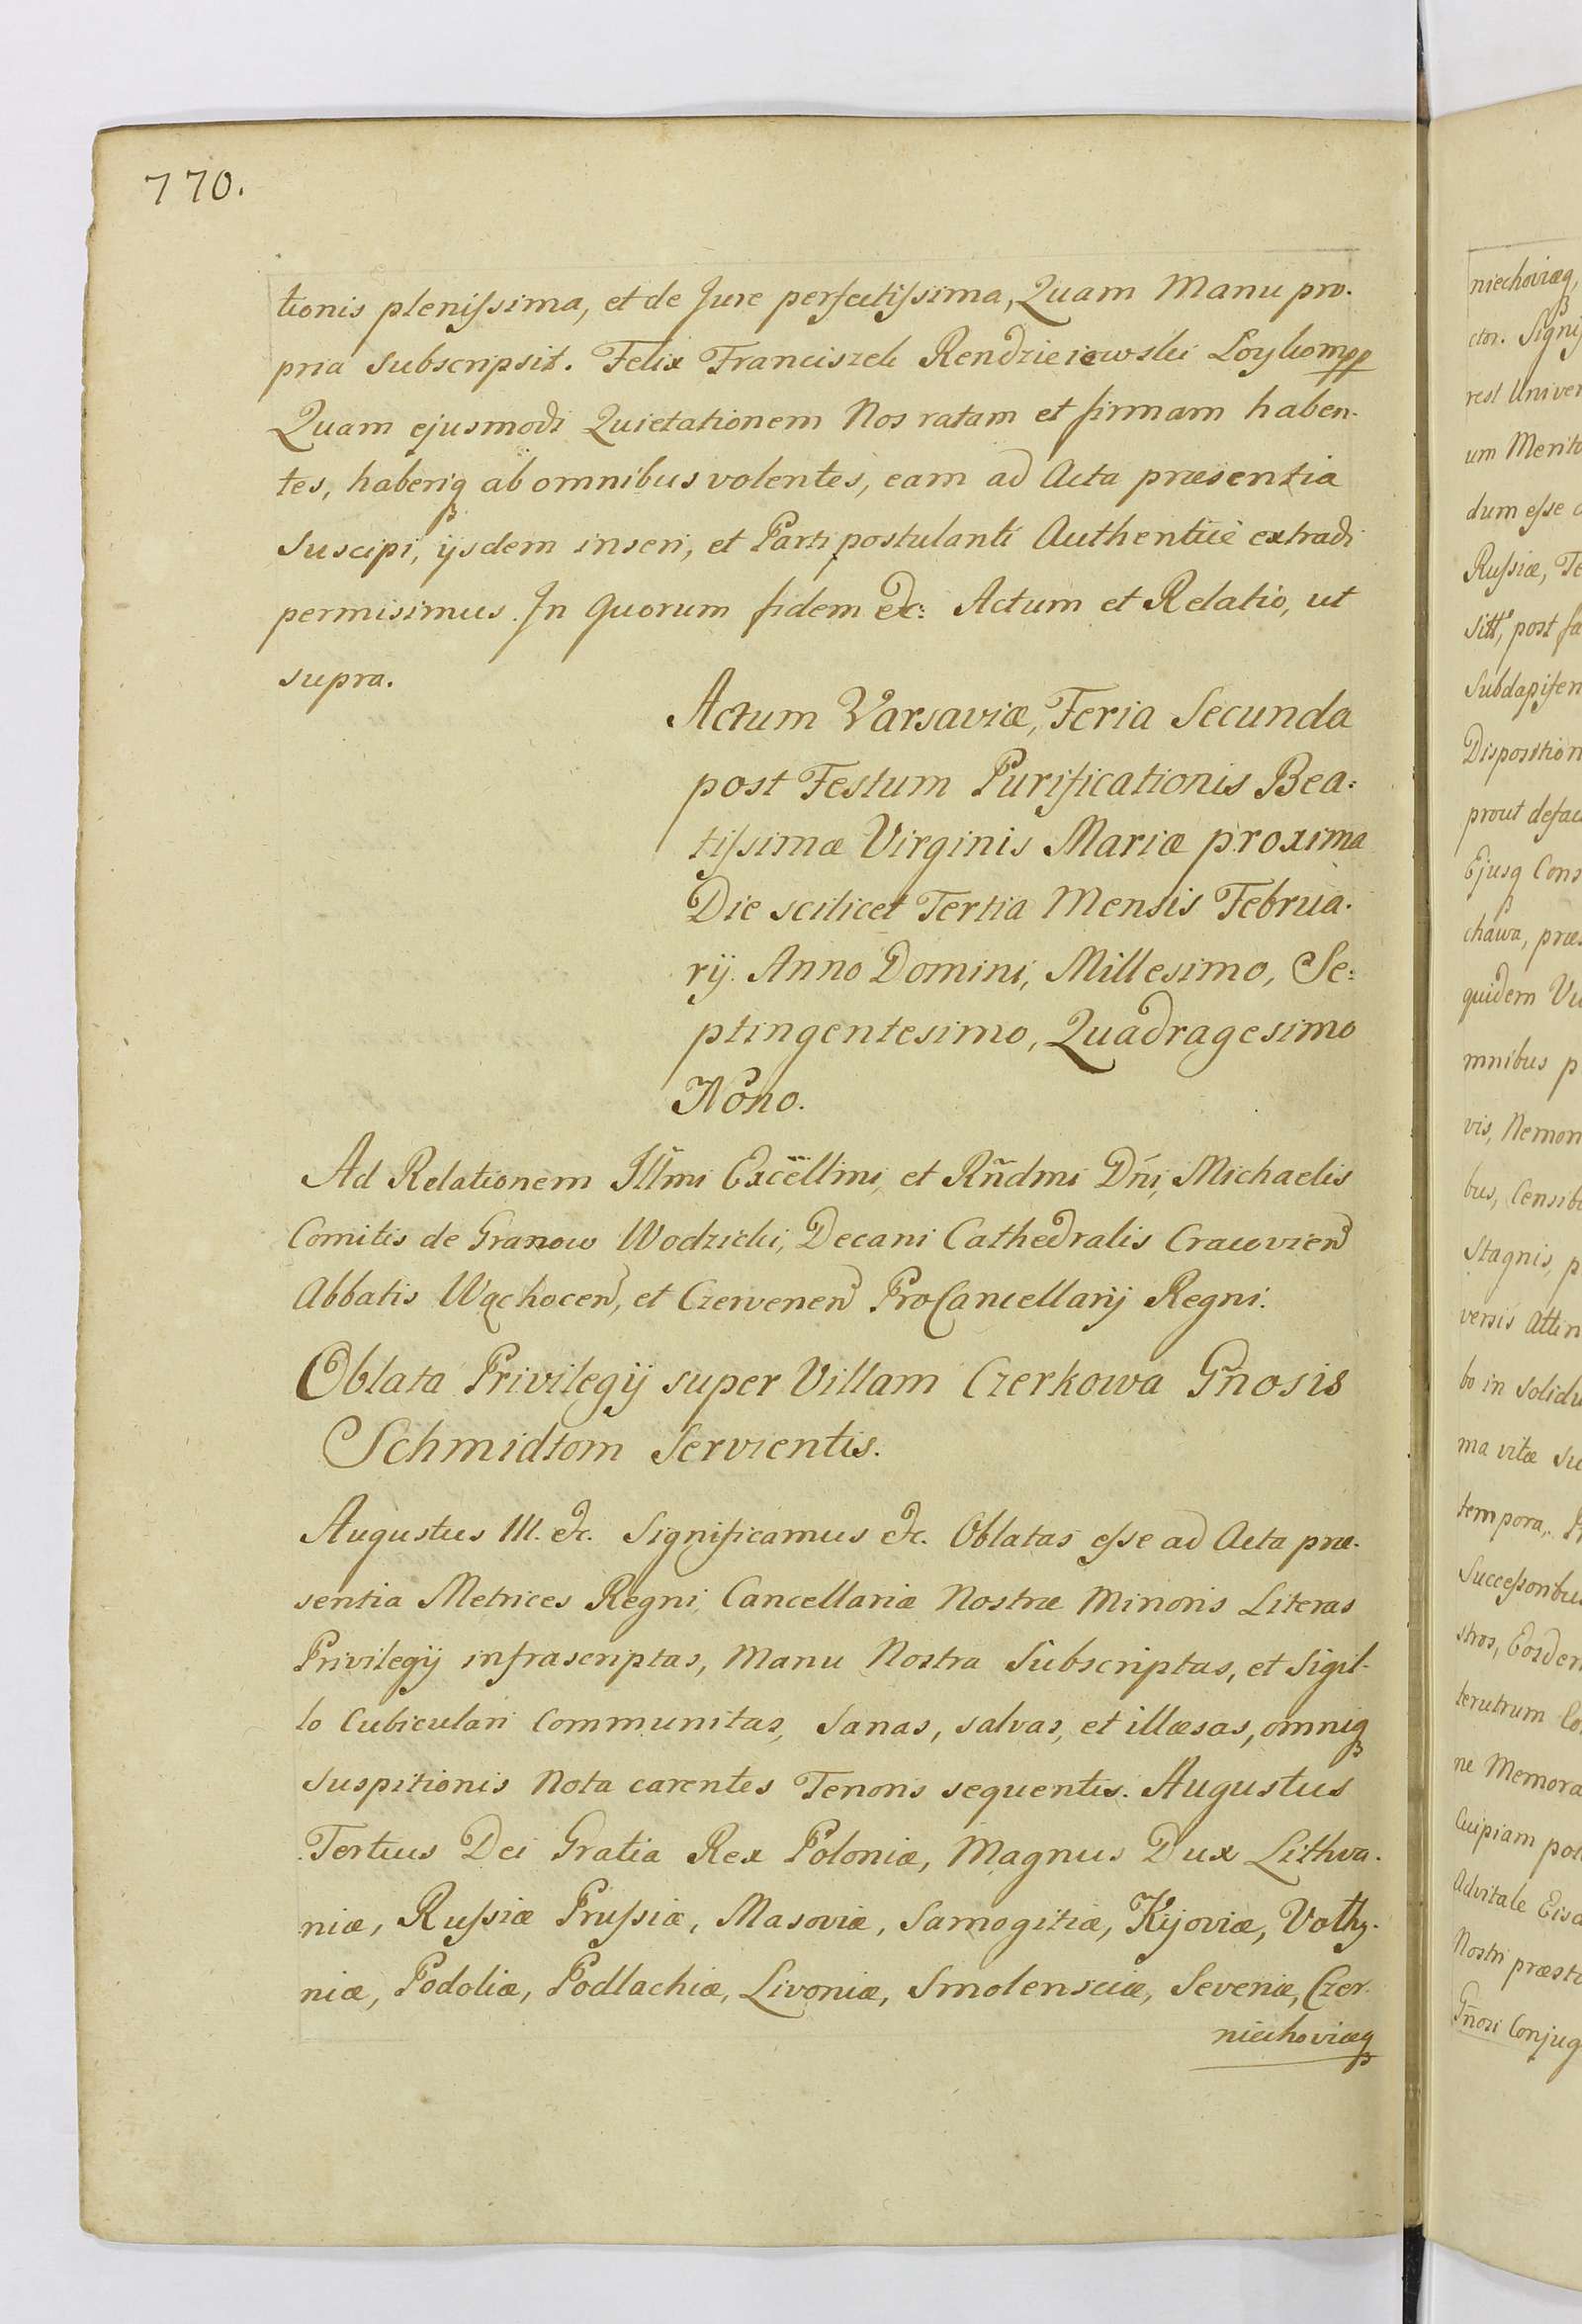 770.
tionis plenissima, et de Jure perfectissima, Quam Manu pro-
pria subscripsit. Felix Franciszek Rendzieiewski Loyko mpp
Quam ejusmodi Quietationem Nos ratam et firmam haben-
tes, haberiq ab omnibus volentes, eam ad Acta præsentia
suscipi, ijsdem inseri, et Parti postulanti Authenticè extradi
permisimus. In quorum fidem &c: Actum et Relatio, ut
supra.
Actum Varsaviæ, Feria Secunda
post Festum Purificationis Bea:
tissimæ Virginis Mariæ proxima
Die scilicet Tertia Mensis Februa-
rij. Anno Domini, Millesimo, Se:
ptingentesimo, Quadragesimo
Nono.
Ad Relationem Illmi Excellmi, et Rñdmi Dñi, Michaelis
Comitis de Granow Wodzicki, Decani Cathedralis Cracovien
Abbatis Wąchocen, et Czerwenen ProCancellarij Regni.
Oblata Privilegij super Villam Czerkowa Gñosis
Schmidtom Servientis.
Augustus III. &c. Significamus &c. Oblatas esse ad Acta præ-
sentia Metrices Regni Cancellariæ Nostræ Minoris Literas
Privilegij infrascriptas, Manu Nostra Subscriptas, et Sigil-
lo Cubiculari Communitas, sanas, salvas, et illæsas, omniq
suspitionis Nota carentes Tenoris sequentis. Augustus
Tertius Dei Gratia Rex Poloniæ, Magnus Dux Lithva-
niæ, Russiæ Prussiæ, Masoviæ, Samogitiæ, Kijoviæ, Volhy-
niæ, Podoliæ, Podlachiæ, Livoniæ, Smolensciæ, Severiæ, Czer-
niechoviæq
niechoviæq,
ctor. Signi
rest Univer
um Merito
dum esse
Russiæ, Te
post fa
Subdapifen
Disposition
prout defac
Ejusq Cons
chawa, præs
quidem Vi
mnibus p
vis, Nemon
bus, Censib
Stagnis, p
versis Attin
bo in solidu
ma vitæ su
tempora,
Successoribus
stros, Eosdem
terutrum Co
ne Memora
Cuipiam pot
Advitale Eisd
Nostri præst
Gñosi Conjug